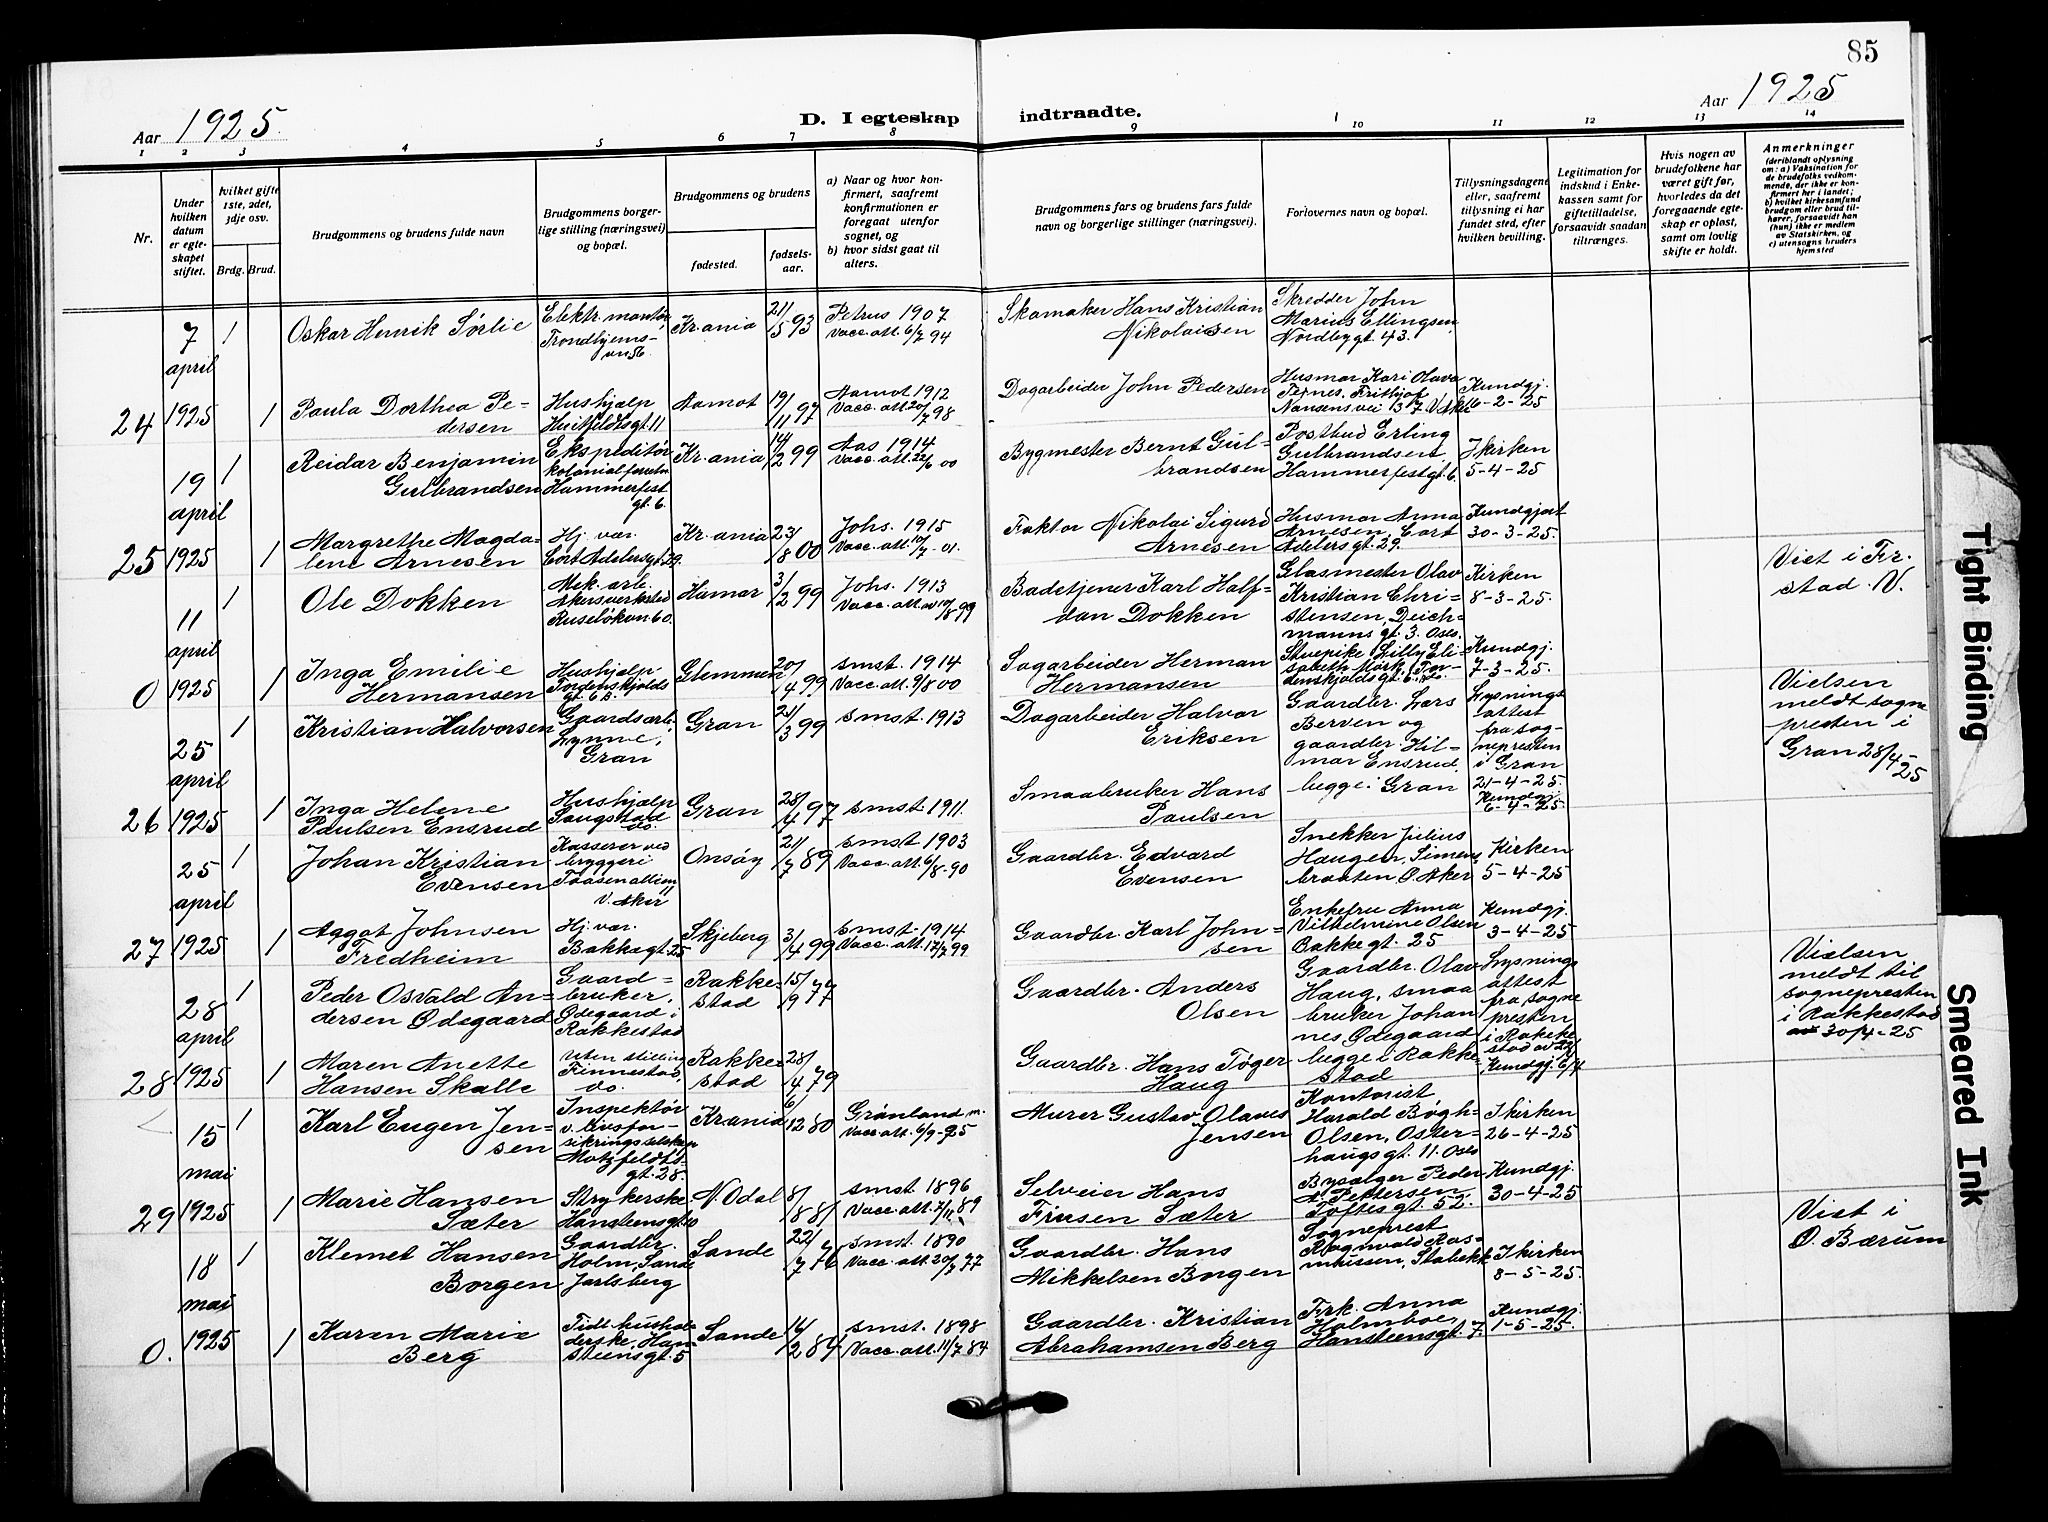 85
Aar 1925
D. I egteskap indtraadte.
Aar 1925
1 2 3 4 5 6 7 8 9 10 11 12 13 14
Nr.
Under hvilken datum er egteskapet stiftet.
hvilket gifte 1ste, 2det, 3dje osv.
Brdg. Brud.
Brudgommens og brudens fulde navn
Brudgommens borgerlige stilling (næringsvei) og bopæl.
Brudgommens og brudens
fødested.
fødselsaar.
a) Naar og hvor konfirmert, saafremt konfirmationen er foregaat utenfor sognet, og
b) hvor sidst gaat til alters.
Brudgommens fars og brudens fars fulde navn og borgerlige stillinger (næringsvei).
Forlovernes navn og bopæl.
Tillysningsdagene eller, saafremt tillysning ei har fundet sted, efter hvilken bevilling.
Legitimation for indskud i Enkekassen samt for giftetilladelse, forsaavidt saadan tiltrænges.
Hvis nogen av brudefolkene har været gift før, hvorledes da det foregaaende egteskap er opløst, samt om lovlig skifte er holdt.
Anmerkninger
(deriblandt oplysning om: a) Vaksination for de brudefolks vedkommende, der ikke er konfirmert her i landet; b) hvilket kirkesamfund brudgom eller brud tilhører, forsaavidt han (hun) ikke er medlem av Statskirken, og c) utensogns bruders hjemsted
24
7 april 1925
1
Oskar Henrik Sørlie
Elektr. montør, Trondhjemsvn 56.
Kr.ania
21/5 93
Petrus 1907
Vacc. att. 6/7 94
Skomaker Hans Kristian Nikolaisen
Skredder John Marius Ellingsen Nordbygt. 43.
1
Paula Dorthea Pedersen
Hushjælp Huitfeldtsgt. 11
Aamot
19/11 97
Aamot 1912
Vacc. att. 20/7 98
Dagarbeider John Pedersen
Husmor Kari Olava Ternes, Fridtjof Nansens vei 13
Kundgj. 6-2-25
25
19 april 1925
1
Reidar Benjamin Gulbrandsen
Ekspeditør kolonialforretn. Hammerfestgt. 6.
Kr.ania
14/2 99
Aas 1914
Vacc. att. 22/6 00
Bygmester Bernt Gulbrandsen
Postbud Erling Gulbrandsen Hammerfestgt. 6.
I kirken 5-4-25
1
Margrethe Magdalene Arnesen
Hj. vær. Cort Adelersgt. 29.
Kr.ania
23/8 00
Johs. 1915
Vacc. att. 10/7-01.
Faktor Nikolai Sigurd Arnesen
Husmor Anna Arnesen, Cort Adelersgt. 29.
Kundgjort 30-3-25.
0
11 april 1925
1
Ole Dokken
Mek. arb. Akersverksted Ruseløkvn 60.
Hamar
3/2 99
Johs. 1913
Vacc. att. 10/8 99
Badetjener Karl Halfdan Dokken
Glasmester Olav Kristian Christensen, Deichmannsgt. 3. Oslo.
Kirken 8-3-25.
Viet i Fr.stad. V.
1
Inga Emilie Hermansen
Hushjælp Tordenskjoldsgt. 6 b.
Glemmen
20/4 99
smst. 1914
Vacc. att. 9/8 00
Sagarbeider Herman Hermansen
Stuepike Lilly Elisabeth Mørk, Tordenskjoldsgt. 6
Kundgj. 7-3-25.
26
25 april 1925
1
Kristian Halvorsen
Gaardsarb. Lynne, Gran
Gran
21/3 99
smst. 1913
Dagarbeider Halvor Eriksen
Gaardbr. Lars Berven og gaardbr. Hilmar Ensrud. begge i Gran
Lysningsattest fra sognepresten i Gran 21-4-25
Vielsen meldt sognepresten i Gran 28/4-25
1
Inga Helene Paulsen Ensrud
Hushjælp Saugstad do.
Gran
28/4 97
smst. 1911.
Smaabruker Hans Paulsen
Kundgj. 6-4-25.
27
25 april 1925
1
Johan Kristian Evensen
Kasserer ved bryggeri Taasenalleen 11 V. Aker
Onsøy
21/7 89
smst. 1903
Vacc. att. 6/8-90
Gaardbr. Edvard Evensen
Snekker Julius Haugen, Simensbraaten, Ø. Aker
Kirken 5-4-25
1
Aagot Johnsen Fredheim
Hj. vær. Bakkegt. 25
Skjeberg
3/4 99
smst. 1914
Vacc. att. 17/7 99
Gaardbr. Karl Johnsen
Enkefru Anna Vilhelmine Olsen Bakkegt. 25
Kundgj. 3-4-25
28
28 april 1925
1
Peder Osvald Andersen Ødegaard
Gaardbruker, Ødegaard i Rakkestad
Rakkestad
15/19 77
Gaardbr. Anders Olsen
Gaardbr. Olav Haug, smaabruker Johannes Ødegaard begge i Rakkestad
Lysningsattest fra sognepresten i Rakkestad av 22/4
Vielsen meldt til sognepresten i Rakkestad 30/4-25
1
Maren Anette Hansen Skalle
Uten stilling Finnestad, do.
Rakkestad
28/4 79
Gaardbr. Hans Tøger Haug
Kundgj. 6/4
29
15 mai 1925
1
Karl Eugen Jensen
Inspektør v. livsforsikringsselskap Motzfeldtsgt. 28.
Kr.ania
6/12 80
Grønland m.
Vacc. att. 6/9-95
Murer Gustav Olaves Jensen
Kontorist Harald Bøgh-Olsen, Osterhausgt. 11. Oslo
I kirken 26-4-25
1
Marie Hansen Sæter
Strykerske Hansteensgt. 10
N. Odal
8/8 81
smst. 1896
Vacc. att. 7/11 89
Selveier Hans Finsen Sæter
Bysælger Peder A. Pettersen Toftesgt. 52.
Kundgj. 30-4-25
0.
18 mai 1925
1
Klemet Hansen Borgen
Gaardbr. Holm, Sande Jarlsberg
Sande
22/7 76
smst. 1890
Vacc. att. 20/7 77
Gaardbr. Hans Mikkelsen Borgen
Sogneprest Ragnvald Rasmussen, Stabekk
I kirken 8-5-25.
Viet i Ø. Bærum
1
Karen Marie Berg
Fidt. husholderske, Hansteensgt. 5
Sande
14/2 84
smst. 1898
Vacc. att. 11/7 84
Gaardbr. Kristian Abrahamsen Berg
Frk. Anna Holmboe, Hansteensgt. 7.
Kundgj. 1-5-25.
Tight Binding
Smeared Ink